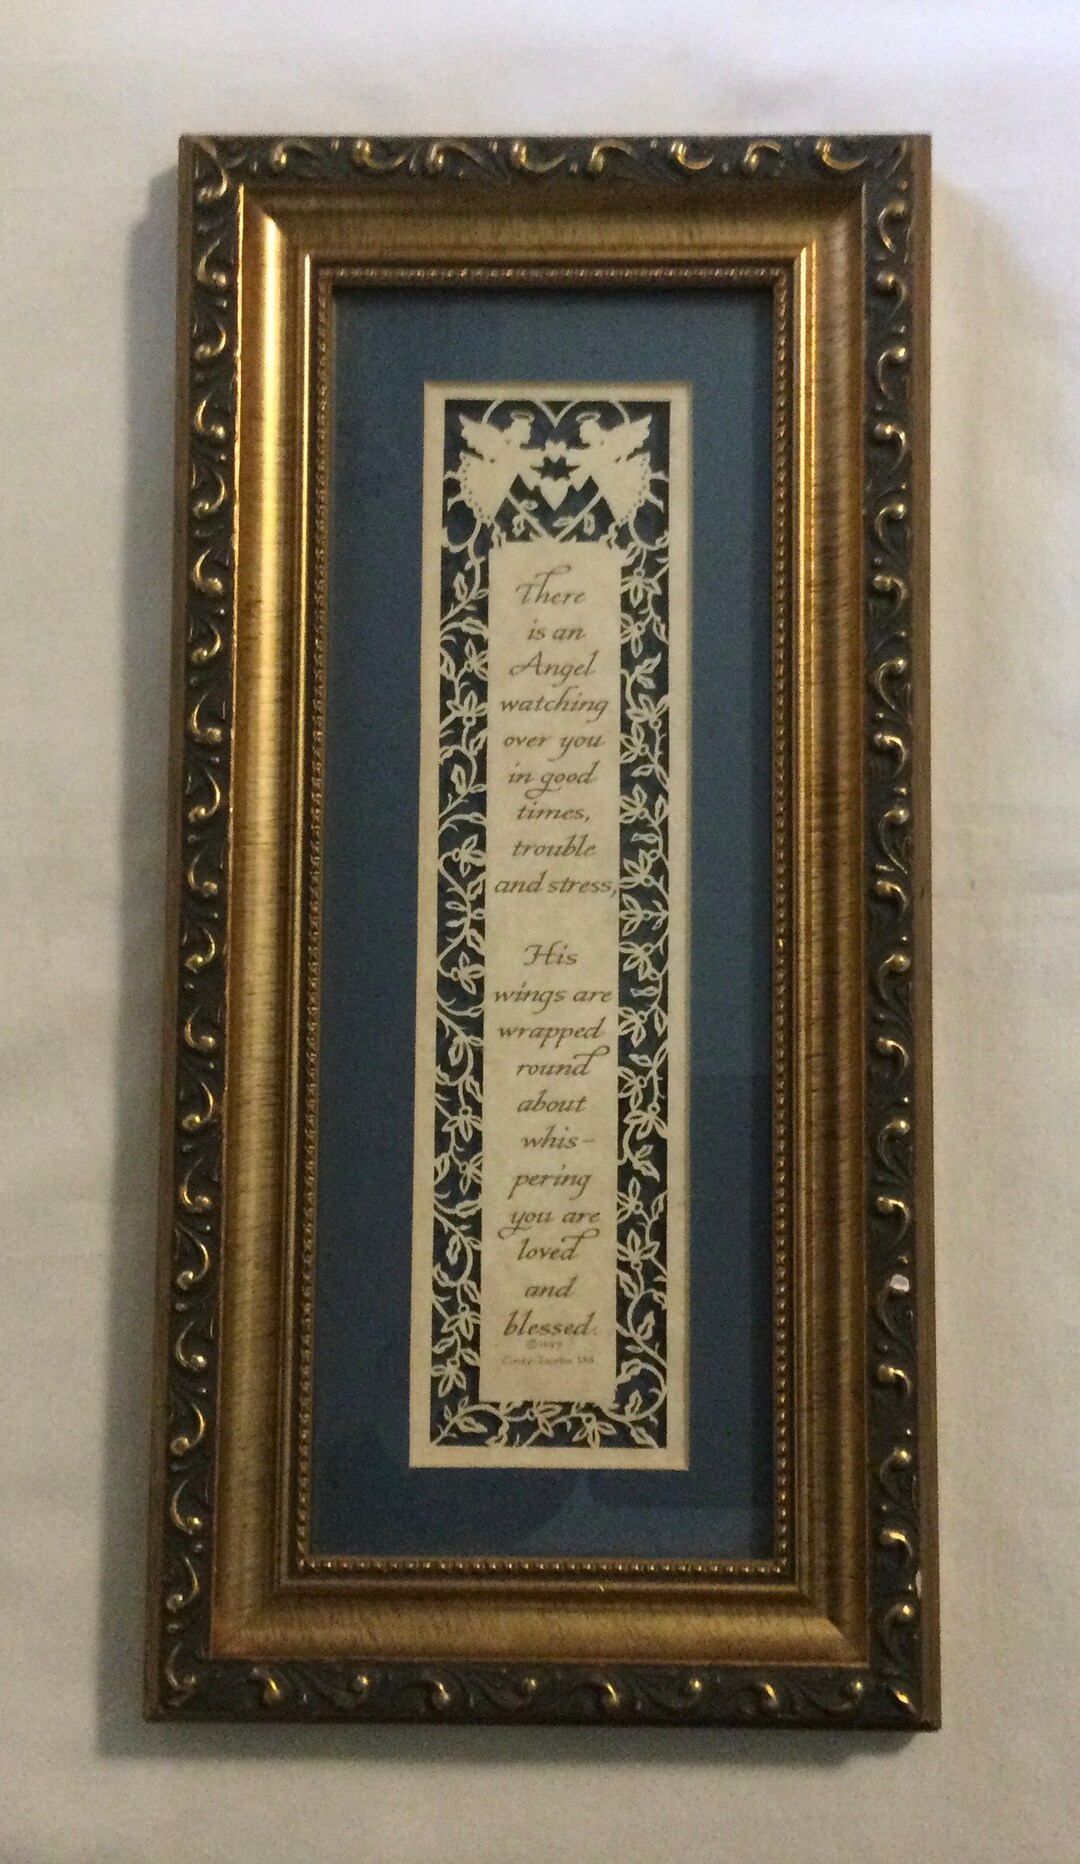 There
is an
Angel
watching
over you
in good
times,
trouble
and stress,
His
wings are
wrapped
round
about
whis-
pering
you are
loved
and
blessed.
©
Cindy Jacobs Ltd